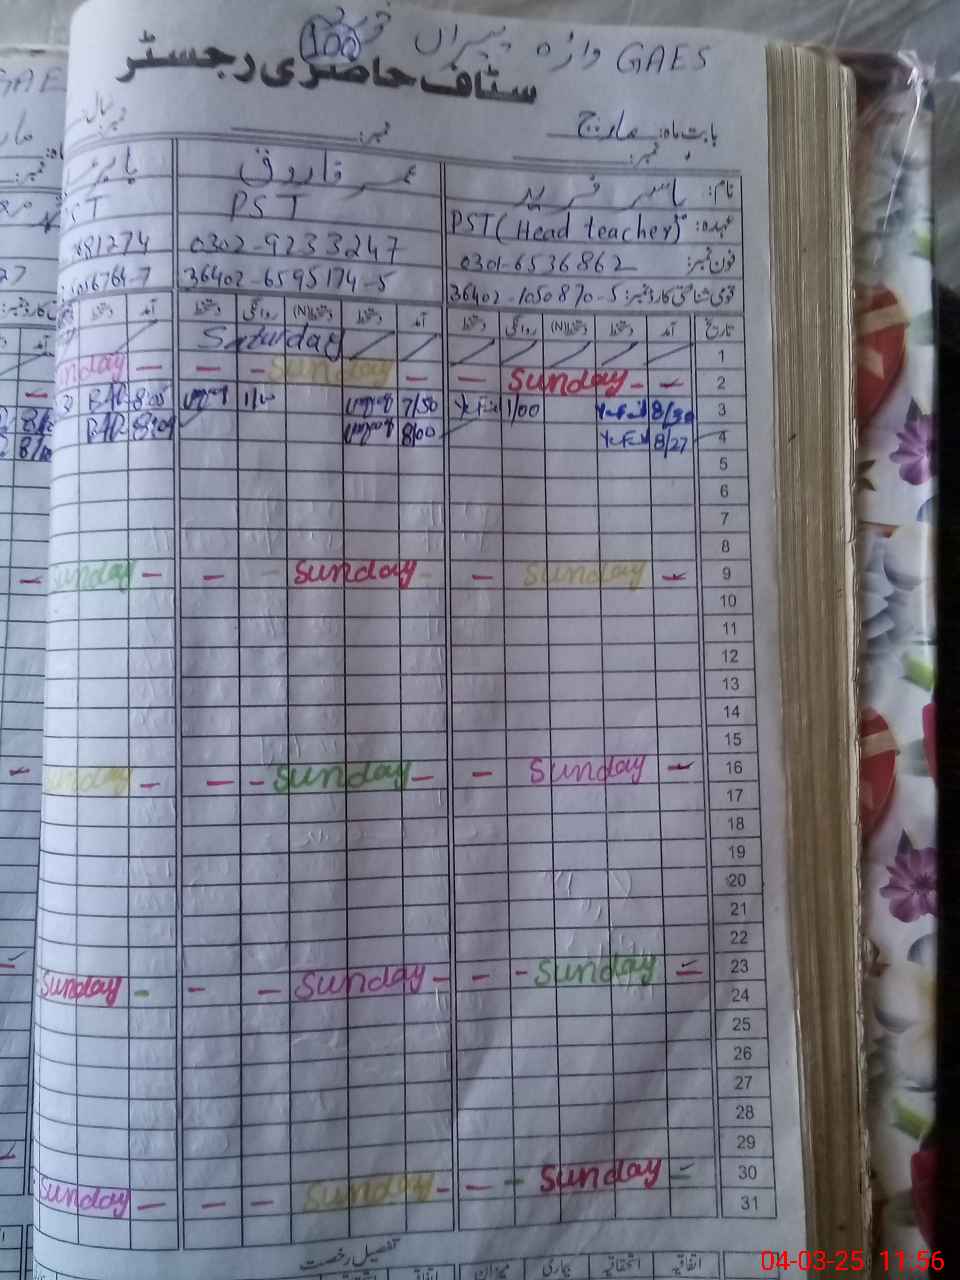 GAES واڑہ پیراں
100
سٹاف حاضری رجسٹر
بابت ماہ: مارچ نمبر: سال:
نمبر:
نام: یاسر فرید عمر فاروق بابر
عہدہ: PST (Head teacher) PST
فون نمبر: 0301-6536862 0302-9233247 81274
قومی شناختی کارڈ نمبر: 36402-1050870-5 36402-6595174-5
تاریخ آمد دستخط دستخط(N) روانگی دستخط آمد دستخط دستخط(N) روانگی دستخط آمد دستخط
1 Saturday
2 Sunday Sunday Sunday
3 8/30 1/00 7/50 8:05
4 8/27 8/00
5
6
7
8
9 Sunday Sunday Sunday
10
11
12
13
14
15
16 Sunday Sunday Sunday
17
18
19
20
21
22
23 Sunday Sunday Sunday
24
25
26
27
28
29
30 Sunday Sunday Sunday
31
تفصیل رخصت
اتفاقیہ استحقاقیہ بیماری میزان
04-03-25 11:56